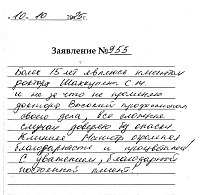 10. 10 2025г.
Заявление №955
Более 15 лет являюсь клиентом
доктора Шаккулах С. М.
и не за что не променяю
доктора. Высокий профессионал
своего дела, все сложные
случаи доверяю без опаски
Клинике Министр огромная
благодарность и процветания
С уважением, благодарный
постоянный клиент